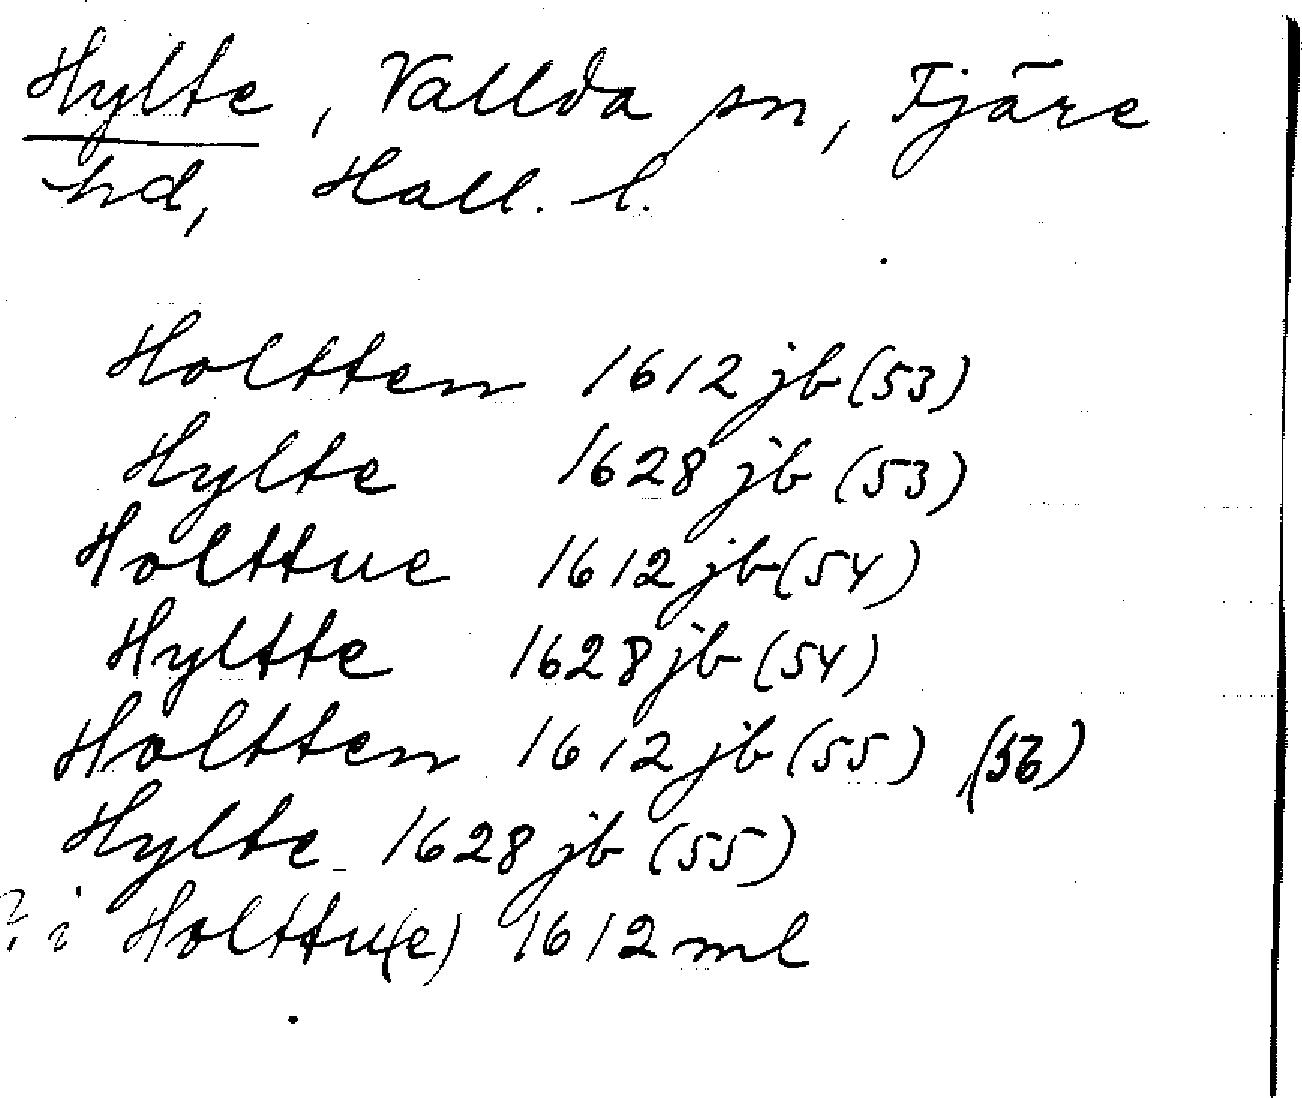 Hylte, Vallda sn, Fjäre
hd, Hall. l.
Holtten 1612 jb (53)
Hylte 1628 jb (53)
Holttue 1612 jb (54)
Hyltte 1628 jb (54)
Holtten 1612 jb (55) (56)
Hylte 1628 jb (55)
? i Holttu(e) 1612 ml